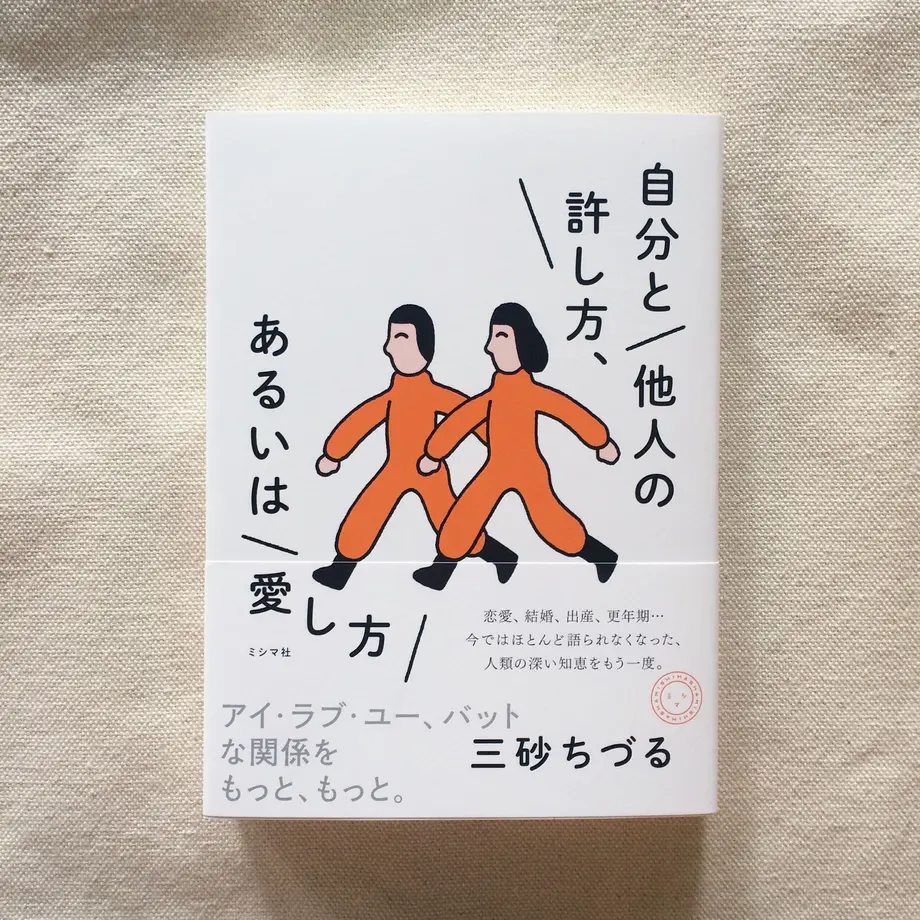 自分と他人の
許し方、
あるいは
愛し方
ミシマ社
恋愛、結婚、出産、更年期…
今ではほとんど語られなくなった、
人類の深い知恵をもう一度。
アイ・ラブ・ユー、バット
な関係を
もっと、もっと。
三砂ちづる